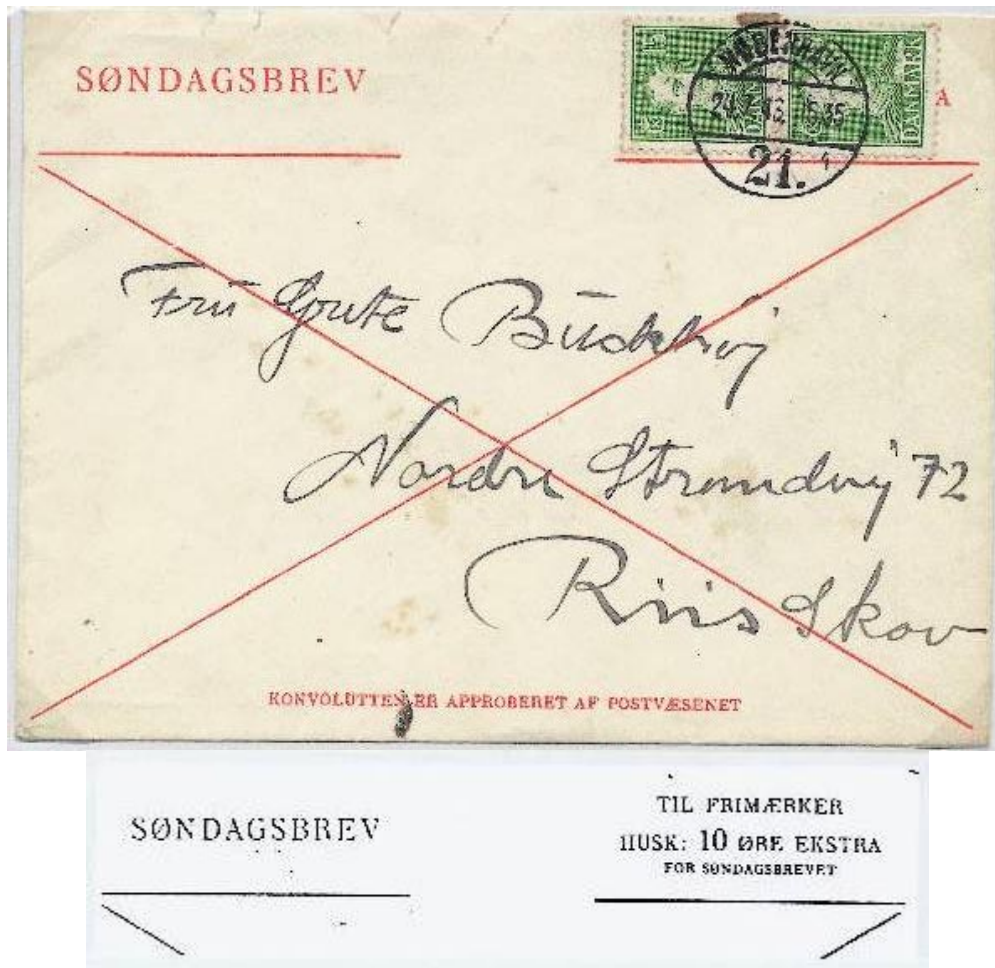 SØNDAGSBREV
A
DANMARK
KØBENHAVN
21.
Fru Grete
Nordre Strandvej 72
Riis Skov
KONVOLUTTEN ER APPROBERET AF POSTVÆSENET
SØNDAGSBREV
TIL FRIMÆRKER
HUSK: 10 ØRE EKSTRA
FOR SØNDAGSBREVET